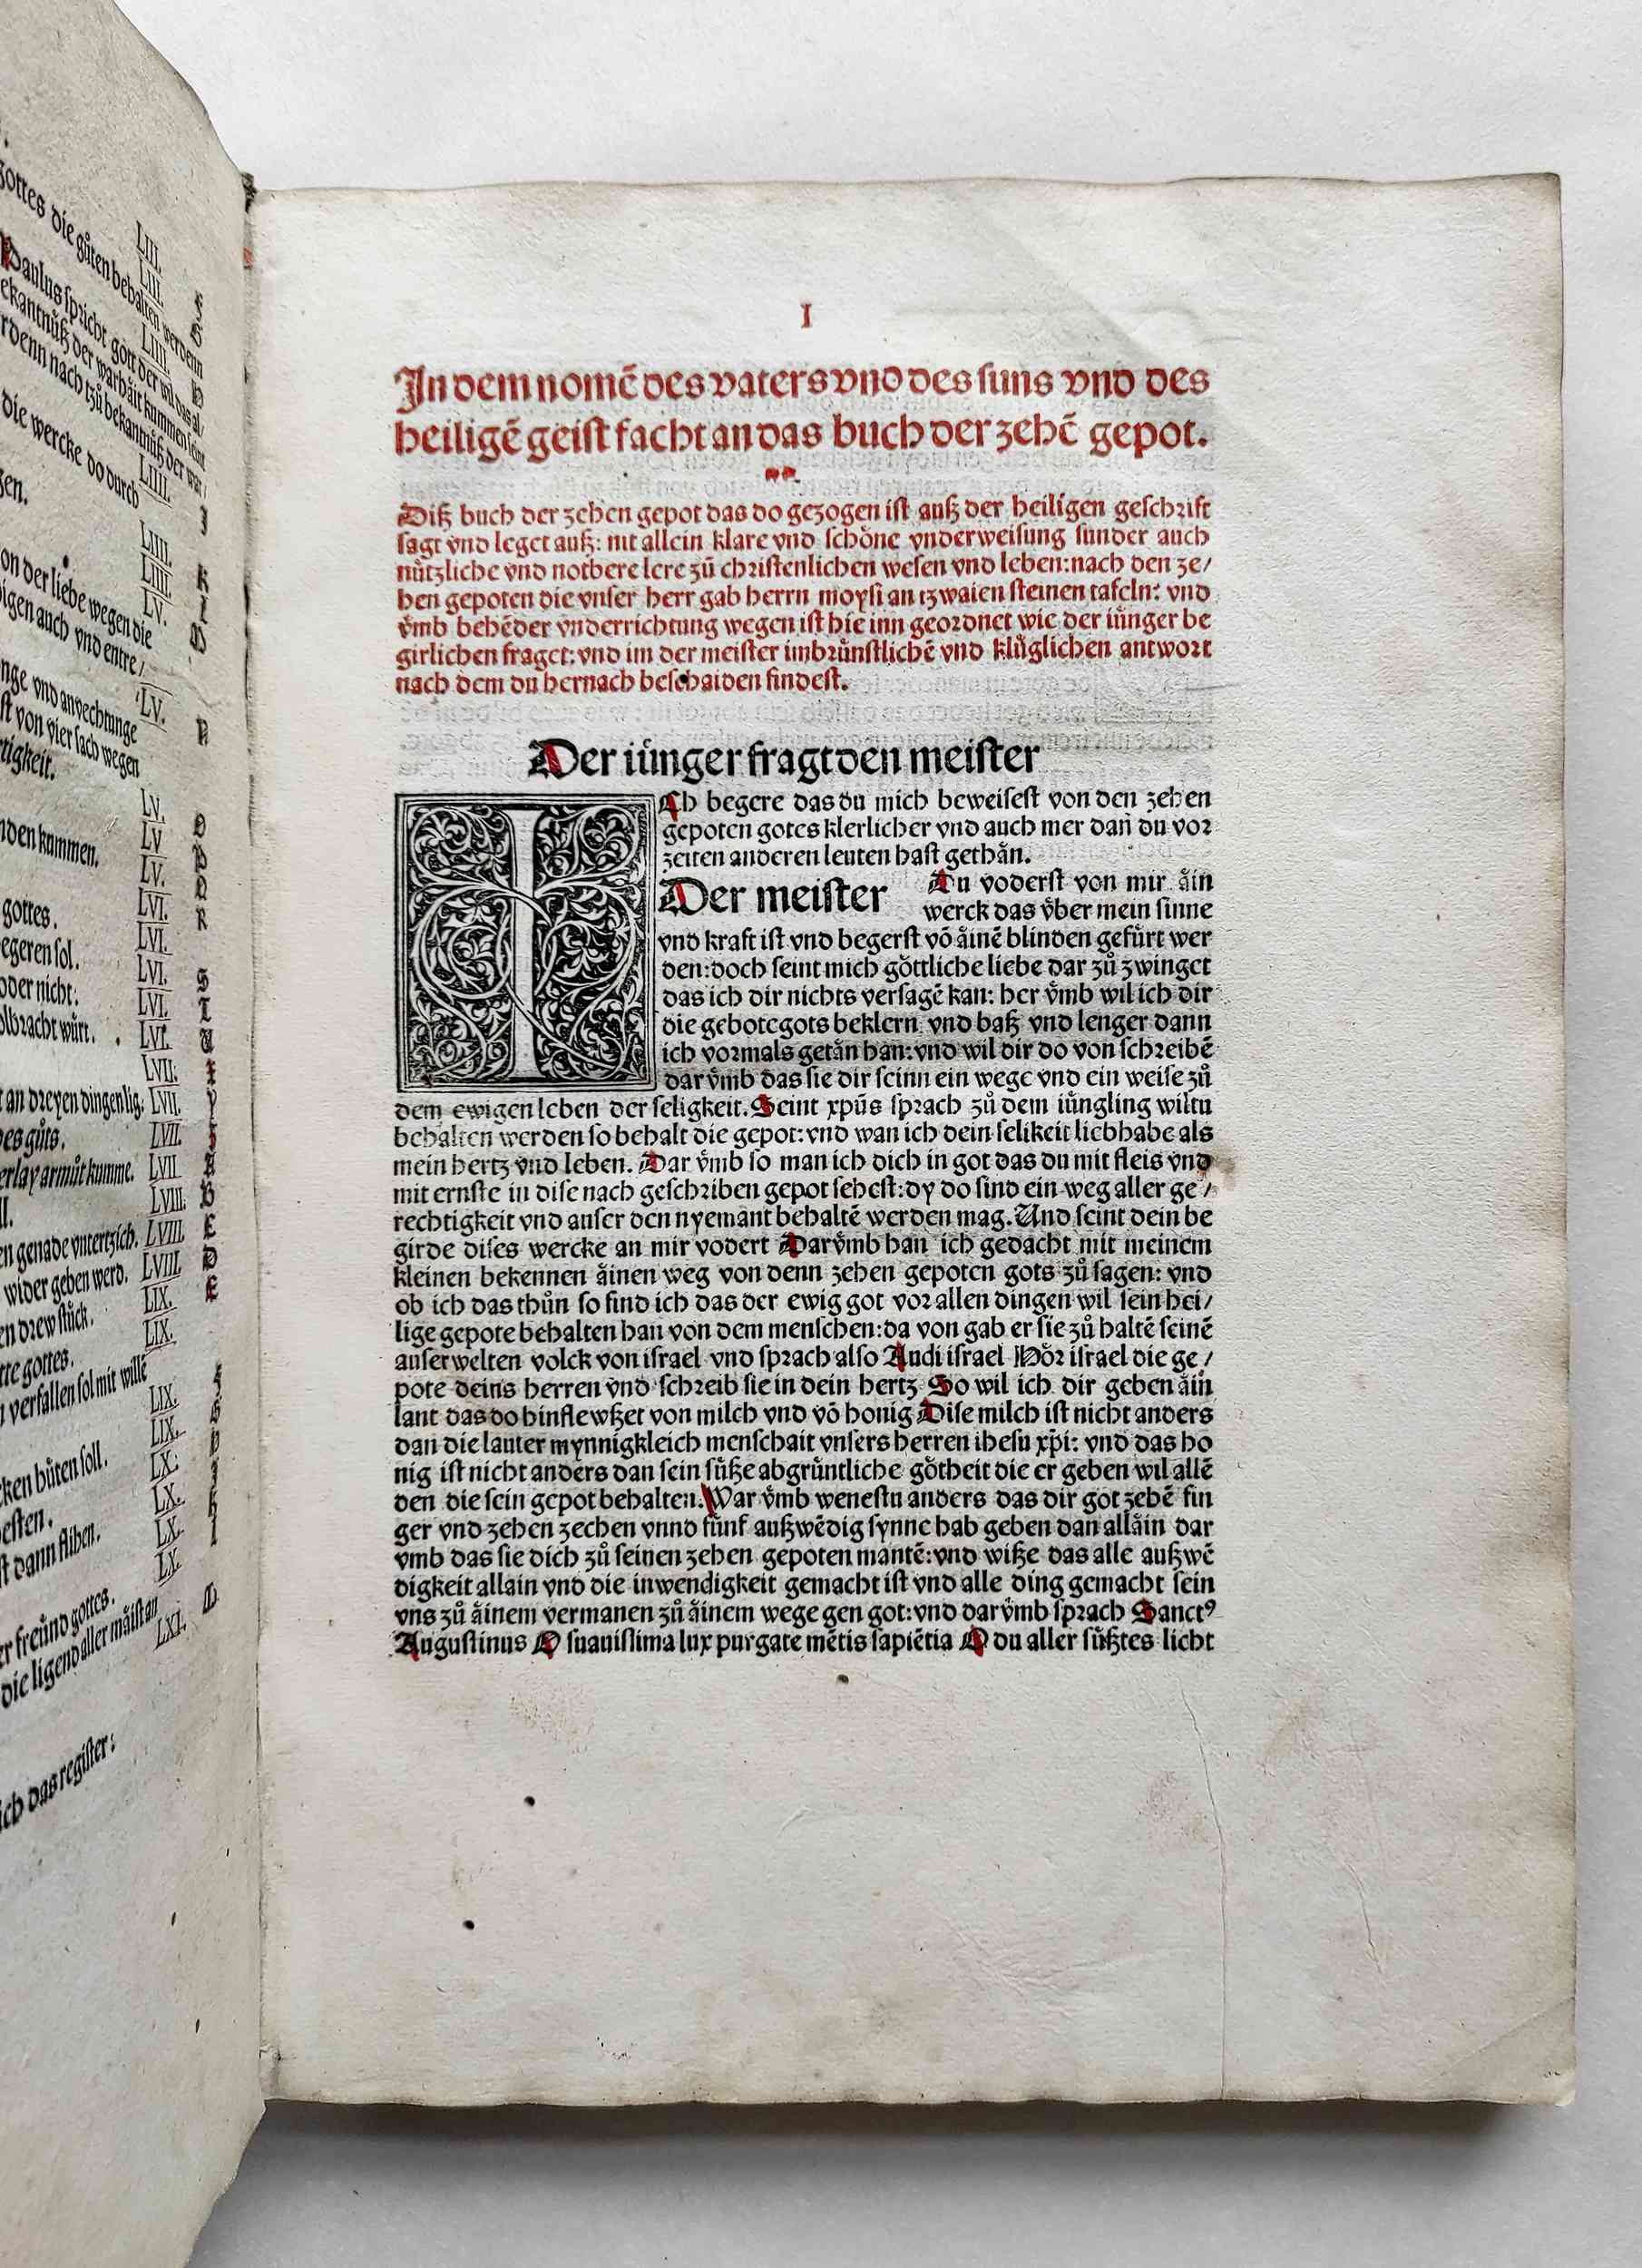 gottes die gůten behalten werdenn
LIII.
LIII.
Paulus spricht gott der wil das al/
LIII.
LIIII.
die wercke do durch
LIIII.
LIIII.
on der liebe wegen die
LV.
igen auch vnd entre/
LV.
nge vnd anvechtunge
st von vier sach wegen
tigkeit.
LV.
LV
nden kummen.
LV.
LVI.
gottes.
LVI.
egeren sol.
LVI.
oder nicht:
LVI.
olbracht wůrt.
LVI.
LVII.
an dreyen dingen lig:
LVII.
es gůts.
LVII.
erlay armůt kumme.
LVII
LVIII.
en genade vntertzich.
LVIII.
wider geben werd.
LVIII.
en drew stůck.
LIX.
LIX.
tte gottes.
verfallen sol mit willē
LIX.
LIX.
ken hůten soll.
LX.
LX.
esten.
LX.
t dann flihen.
LX.
er freůnd gottes.
die ligend aller måist an
LXI.
ich das register:
I
In dem nomē des vaters vnd des suns vnd des
heiligē geist facht an das buch der zehē gepot.
Diß buch der zehen gepot das do gezogen ist auß der heiligen geschrift
sagt vnd leget auß: nit allein klare vnd schöne vnderweisung sunder auch
nützliche vnd notbere lere zů christenlichen wesen vnd leben: nach den ze/
hen gepoten die vnser herr gab herrn moysi an tzwaien steinen tafeln: vnd
vͦmb behēder vnderrichtung wegen ist hie inn geordnet wie der iůnger be
girlichen fraget: vnd im der meister imbrůnstlichē vnd klůglichen antwort
nach dem du hernach beschaiden findest.
Der iůnger fragt den meister
Ich begere das du mich beweisest von den zehen
gepoten gotes klerlicher vnd auch mer dan̄ du vor
zeiten anderen leuten hast gethån.
Der meister Du voderst von mir åin
werck das vͦber mein sinne
vnd kraft ist vnd begerst vō åinē blinden gefůrt wer
den: doch seint mich göttliche liebe dar zů zwinget
das ich dir nichts versagē kan: her vͦmb wil ich dir
die gebote gots beklern vnd baß vnd lenger dann
ich vormals getån han: vnd wil dir do von schreibē
dar vͦmb das sie dir seinn ein wege vnd ein weise zů
dem ewigen leben der seligkeit. Seint xp̄us sprach zů dem iůngling wiltu
behalten werden so behalt die gepot: vnd wan ich dein selikeit liebhabe als
mein hertz vnd leben. Dar vͦmb so man ich dich in got das du mit fleis vnd
mit ernste in dise nach geschriben gepot sehest: dy do sind ein weg aller ge/
rechtigkeit vnd auser den nyemant behaltē werden mag. Und seint dein be
girde dises wercke an mir vodert Darvͦmb han ich gedacht mit meinem
kleinen bekennen åinen weg von denn zehen gepoten gots zů sagen: vnd
ob ich das thůn so find ich das der ewig got vor allen dingen wil sein hei/
lige gepote behalten han von dem menschen: da von gab er sie zů haltē seinē
auserwelten volck von israel vnd sprach also Audi israel Hör israel die ge/
pote deins herren vnd schreib sie in dein hertz So wil ich dir geben åin
lant das do hinflewßet von milch vnd vō honig Dise milch ist nicht anders
dan die lauter mynnigkleich menschait vnsers herren ihesu xp̄i: vnd das ho
nig ist nicht anders dan sein sůße abgrůntliche götheit die er geben wil allē
den die sein gepot behalten. War vͦmb wenestu anders das dir got zehē fin
ger vnd zehen zechen vnnd fůnf außwēdig synne hab geben dan allåin dar
vmb das sie dich zů seinen zehen gepoten mantē: vnd wiße das alle außwē
digkeit allain vnd die inwendigkeit gemacht ist vnd alle ding gemacht sein
vns zů åinem vermanen zů åinem wege gen got: vnd darvͦmb sprach Sanctꝰ
Augustinus O suauissima lux purgate mētis sapiētia O du aller sůßtes licht